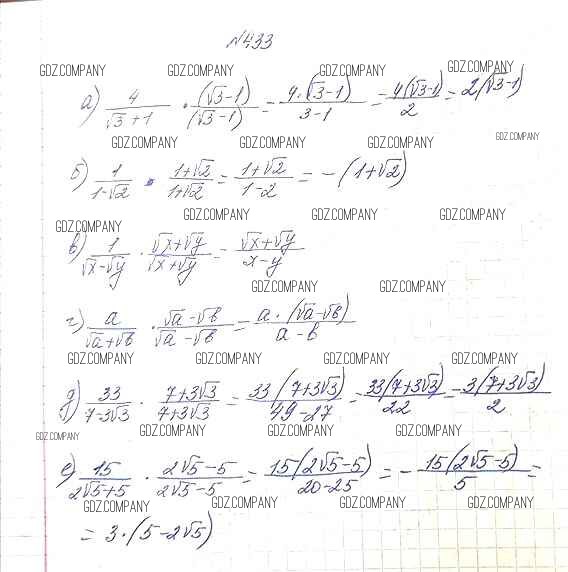 №433
GDZ.COMPANY GDZ.COMPANY GDZ.COMPANY GDZ.COMPANY
а) 4/(√3+1) · (√3-1)/(√3-1) = 4·(√3-1)/(3-1) = 4(√3-1)/2 = 2(√3-1)
GDZ.COMPANY GDZ.COMPANY GDZ.COMPANY GDZ.COMPANY
б) 1/(1-√2) · (1+√2)/(1+√2) = (1+√2)/(1-2) = -(1+√2)
GDZ.COMPANY GDZ.COMPANY GDZ.COMPANY GDZ.COMPANY
в) 1/(√x-√y) · (√x+√y)/(√x+√y) = (√x+√y)/(x-y)
GDZ.COMPANY GDZ.COMPANY GDZ.COMPANY
г) a/(√a+√b) · (√a-√b)/(√a-√b) = a·(√a-√b)/(a-b)
GDZ.COMPANY GDZ.COMPANY GDZ.COMPANY GDZ.COMPANY
д) 33/(7-3√3) · (7+3√3)/(7+3√3) = 33(7+3√3)/(49-27) = 33(7+3√3)/22 = 3(7+3√3)/2
GDZ.COMPANY GDZ.COMPANY GDZ.COMPANY GDZ.COMPANY
е) 15/(2√5+5) · (2√5-5)/(2√5-5) = 15(2√5-5)/(20-25) = -15(2√5-5)/5 =
GDZ.COMPANY GDZ.COMPANY GDZ.COMPANY GDZ.COMPANY
= 3·(5-2√5)